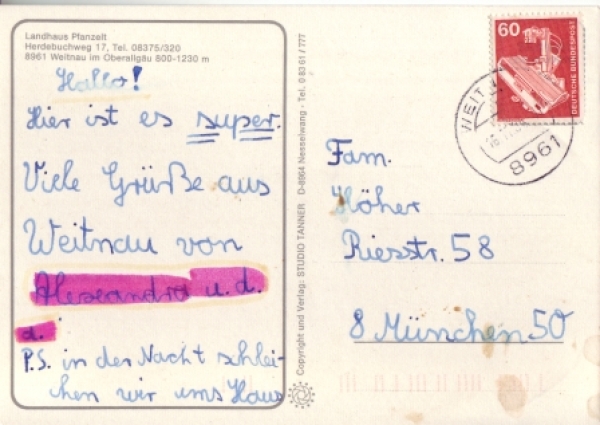 Landhaus Pfanzelt
Herdebuchweg 17, Tel. 08375/320
8961 Weitnau im Oberallgäu 800-1230 m
Hallo!
Hier ist es super.
Viele Grüße aus
Weitnau von
Alexandra u. d.
d.
P.S. in der Nacht schlei-
chen wir ums Haus
Copyright und Verlag: STUDIO TANNER D-8964 Nesselwang · Tel. 0 83 61 / 777
60
DEUTSCHE BUNDESPOST
8961
Fam.
Höher
Riesstr. 58
8 München 50